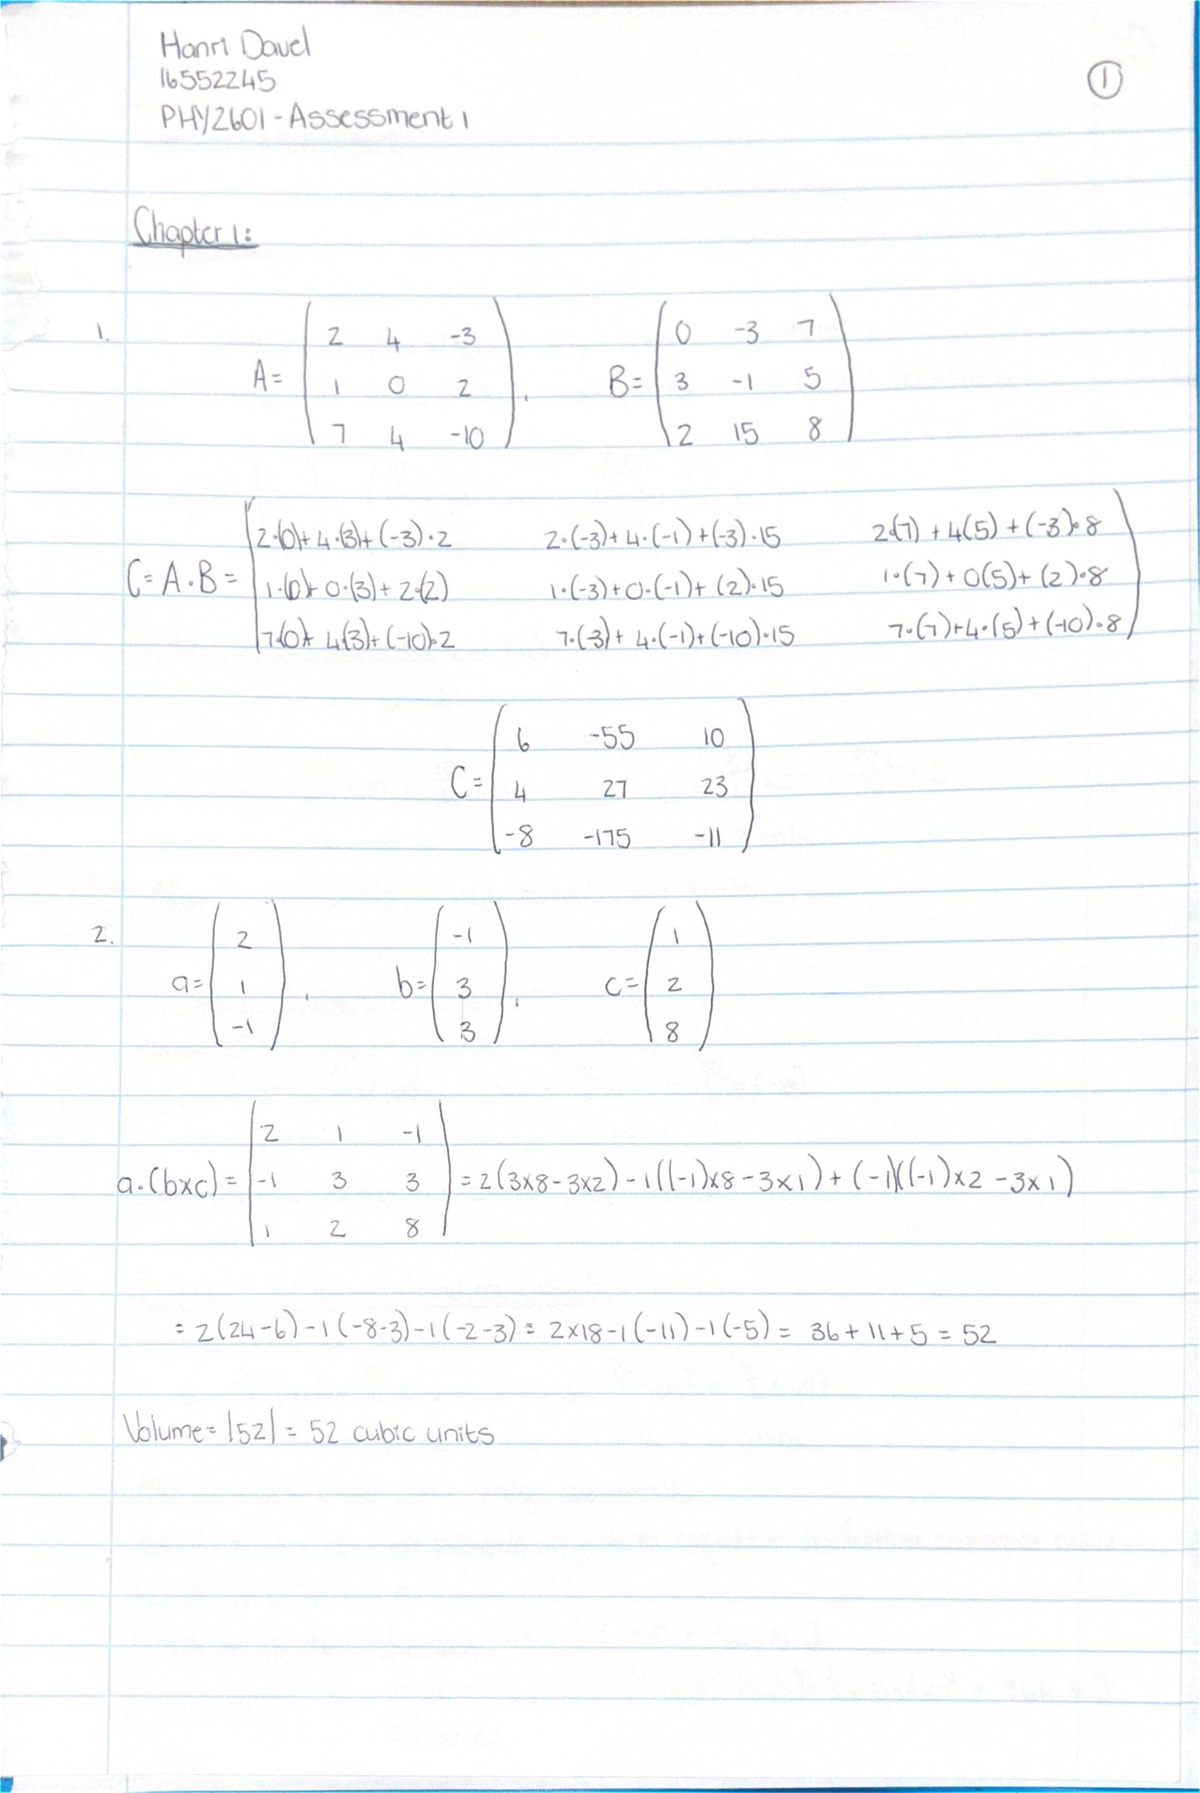 Hanri Davel
16552245
PHY2601 - Assessment 1
1
Chapter 1:
1. A = ( 2 4 -3 , B = ( 0 -3 7
1 0 2 3 -1 5
7 4 -10 ) 2 15 8 )
C = A·B = ( 2·(0)+4·(3)+(-3)·2 2·(-3)+4·(-1)+(-3)·15 2·(7)+4(5)+(-3)·8
1·(0)+0·(3)+2·(2) 1·(-3)+0·(-1)+(2)·15 1·(7)+0(5)+(2)·8
7·(0)+4(3)+(-10)·2 7·(-3)+4·(-1)+(-10)·15 7·(7)+4·(5)+(-10)·8 )
C = ( 6 -55 10
4 27 23
-8 -175 -11 )
2. a = ( 2 , b = ( -1 , c = ( 1
1 3 2
-1 ) 3 ) 8 )
a·(b×c) = | 2 1 -1 |
| -1 3 3 | = 2(3×8-3×2)-1((-1)×8-3×1)+(-1)((-1)×2-3×1)
| 1 2 8 |
= 2(24-6)-1(-8-3)-1(-2-3) = 2×18-1(-11)-1(-5) = 36+11+5 = 52
Volume = |52| = 52 cubic units